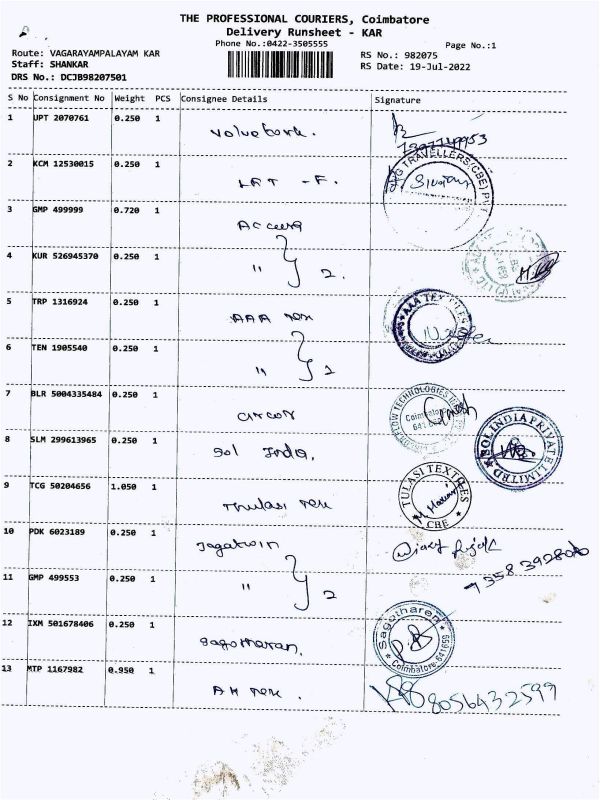 THE PROFESSIONAL COURIERS, Coimbatore
Delivery Runsheet - KAR
Phone No.:0422-3505555
Page No.:1
Route: VAGARAYAMPALAYAM KAR
Staff: SHANKAR
DRS No.: DCJB98207501
RS No.: 982075
RS Date: 19-Jul-2022
S No Consignment No Weight PCS Consignee Details Signature
1 UPT 2070761 0.250 1
2 KCM 12530015 0.250 1 LRT -F.
TRAVELLERS(CBE) PVT
3 GMP 499999 0.720 1
4 KUR 526945370 0.250 1 " 2.
5 TRP 1316924 0.250 1 AAA Tex
AAA TEXTILES
6 TEN 1905540 0.250 1 " 2
7 BLR 5004335484 0.250 1
FLOW TECHNOLOGIES
Coimbatore
8 SLM 299613965 0.250 1 Sol India.
SOL INDIA PRIVATE LIMITED
9 TCG 50204656 1.050 1 Thulasi Tex
TULASI TEXTILES
CBE
10 PDK 6023189 0.250 1 Jagatwin
11 GMP 499553 0.250 1 " 2
12 IXM 501678406 0.250 1 Sagotharan.
Sagotharen
Coimbatore 641659
13 MTP 1167982 0.950 1 AM Tex.
8056432599